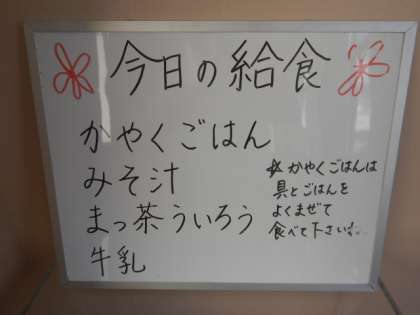 今日の給食
かやくごはん
みそ汁
まっ茶ういろう
牛乳
☆かやくごはんは
具とごはんを
よくまぜて
食べて下さい!...